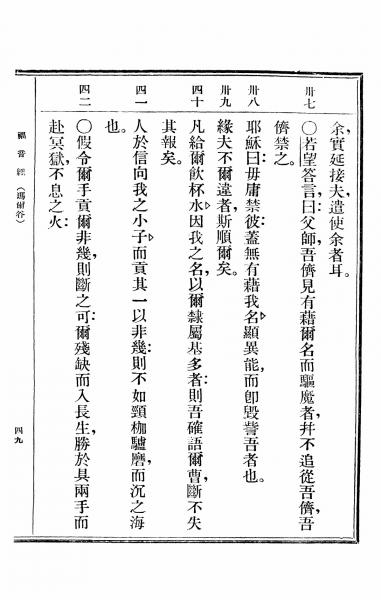 余，實延接夫遣使余者耳。
卅七
〇若望答言：曰父師，吾儕見有藉爾名而驅魔者，幷不追從吾儕，吾
儕禁之。
卅八
耶穌曰：毋庸禁彼：蓋無有藉我名顯異能，而卽毀讟吾者也。
卅九
緣夫不爾違者，斯順爾矣。
四十
凡給爾飲杯水因我之名，以爾隸屬基多者：則吾確語爾曹，斷不失
其報矣。
四一
人於信向我之小子而貢其一以非幾：則不如頸枷驢磨，而沉之海
也。
四二
〇假令爾手貢爾非幾，則斷之可：爾殘缺而入長生，勝於具兩手而
赴冥獄，不息之火：
福音經
（瑪爾谷）
四九